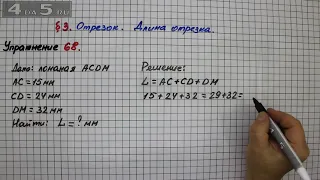 4DA5.RU
§ 3. Отрезок. Длина отрезка.
Упражнение 68.
Дано: ломаная ACDM
AC = 15 мм
CD = 24 мм
DM = 32 мм
Найти: L = ? мм
Решение:
L = AC + CD + DM
15 + 24 + 32 = 29 + 32 =